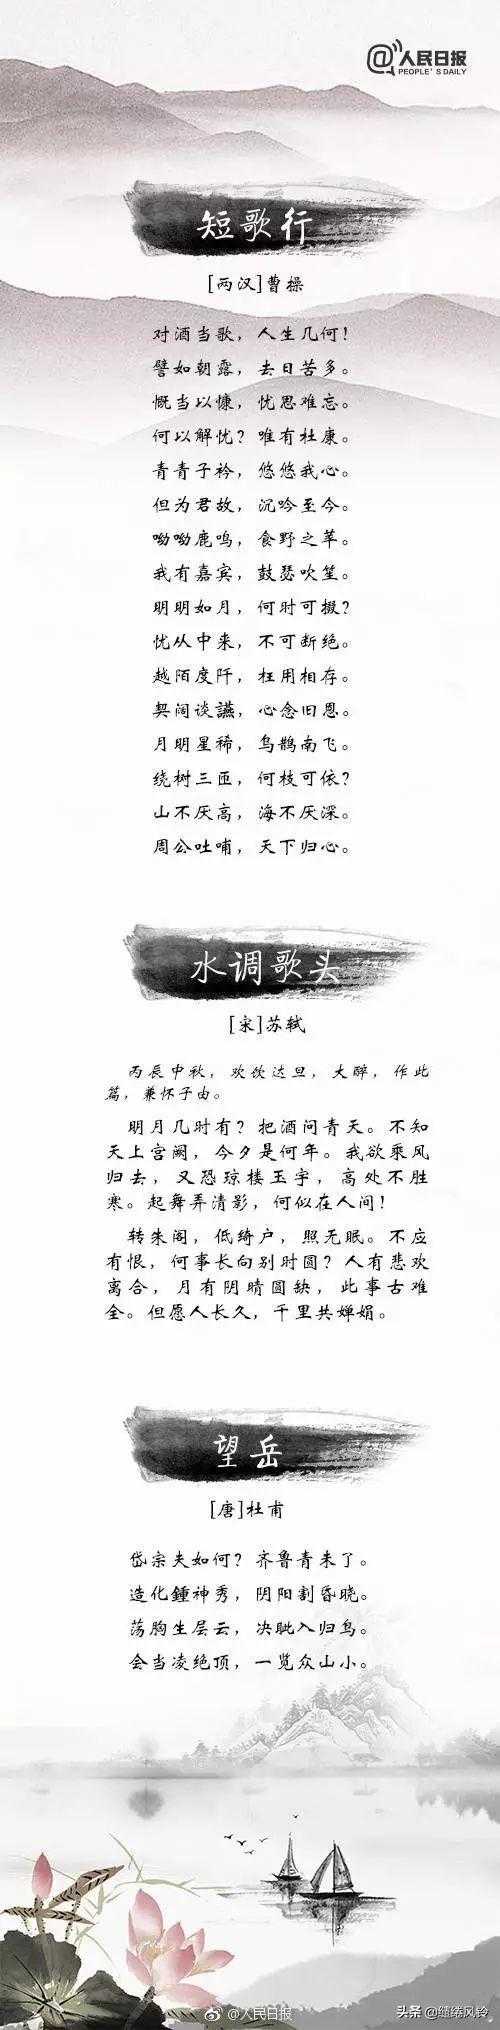 @人民日报
PEOPLE'S DAILY
短歌行
[两汉]曹操
对酒当歌，人生几何！
譬如朝露，去日苦多。
慨当以慷，忧思难忘。
何以解忧？唯有杜康。
青青子衿，悠悠我心。
但为君故，沉吟至今。
呦呦鹿鸣，食野之苹。
我有嘉宾，鼓瑟吹笙。
明明如月，何时可掇？
忧从中来，不可断绝。
越陌度阡，枉用相存。
契阔谈讌，心念旧恩。
月明星稀，乌鹊南飞。
绕树三匝，何枝可依？
山不厌高，海不厌深。
周公吐哺，天下归心。
水调歌头
[宋]苏轼
丙辰中秋，欢饮达旦，大醉，作此
篇，兼怀子由。
明月几时有？把酒问青天。不知
天上宫阙，今夕是何年。我欲乘风
归去，又恐琼楼玉宇，高处不胜
寒。起舞弄清影，何似在人间！
转朱阁，低绮户，照无眠。不应
有恨，何事长向别时圆？人有悲欢
离合，月有阴晴圆缺，此事古难
全。但愿人长久，千里共婵娟。
望岳
[唐]杜甫
岱宗夫如何？齐鲁青未了。
造化鍾神秀，阴阳割昏晓。
荡胸生层云，决眦入归鸟。
会当凌绝顶，一览众山小。
@人民日报
头条 @缱绻风铃